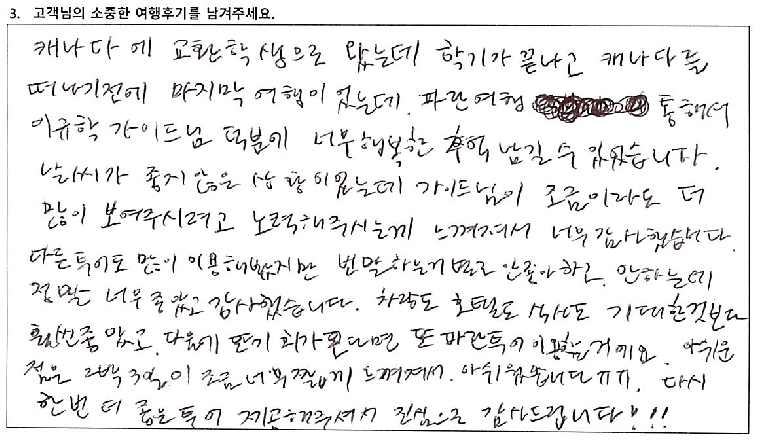 3. 고객님의 소중한 여행후기를 남겨주세요.
캐나다에 교환학생으로 왔는데 학기가 끝나고 캐나다를
떠나기전에 마지막 여행이었는데. 파란여행 통해서
이규학 가이드님 덕분에 너무 행복한 추억 남길 수 있었습니다.
날씨가 좋지 않은 상황이었는데 가이드님이 조금이라도 더
많이 보여주시려고 노력해주시는게 느껴져서 너무 감사했습니다.
다른투어도 많이 이용해봤지만 번막하는거 별로 안좋아하고. 안하는데
정말 너무 좋았고 감사했습니다. 차량도 호텔도 식사도 기대한것보다
훨씬 좋았고. 다음에 또 기회가 된다면 또 파란투어 이용할 거에요. 아쉬운
점은 2박 3일이 조금 너무 짧게 느껴져서. 아쉬웠습니다ㅠㅠ. 다시
한번 더 좋은투어 제공해주셔서 진심으로 감사드립니다!!!